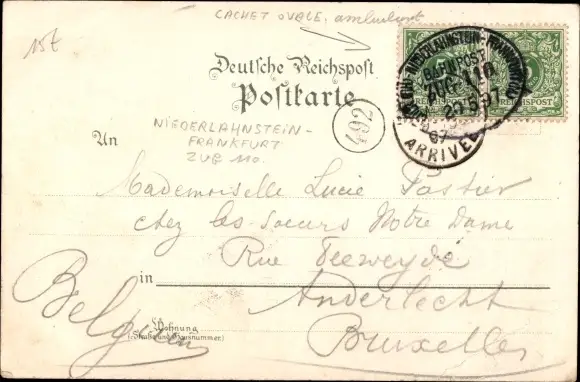 CACHET OVALE, ambulant
15t
Deutsche Reichspost
Postkarte
NIEDERLAHNSTEIN - FRANKFURT
BAHNPOST
ZUG 110
REICHSPOST REICHSPOST
ARRIVEE
492
NIEDERLAHNSTEIN -
FRANKFURT
ZUG 110.
An
Mademoiselle Lucie Pastier
chez les soeurs Notre Dame
Rue Veeweyde
in Anderlecht
Belgien
Wohnung
(Straße und Hausnummer)
Bruxelles